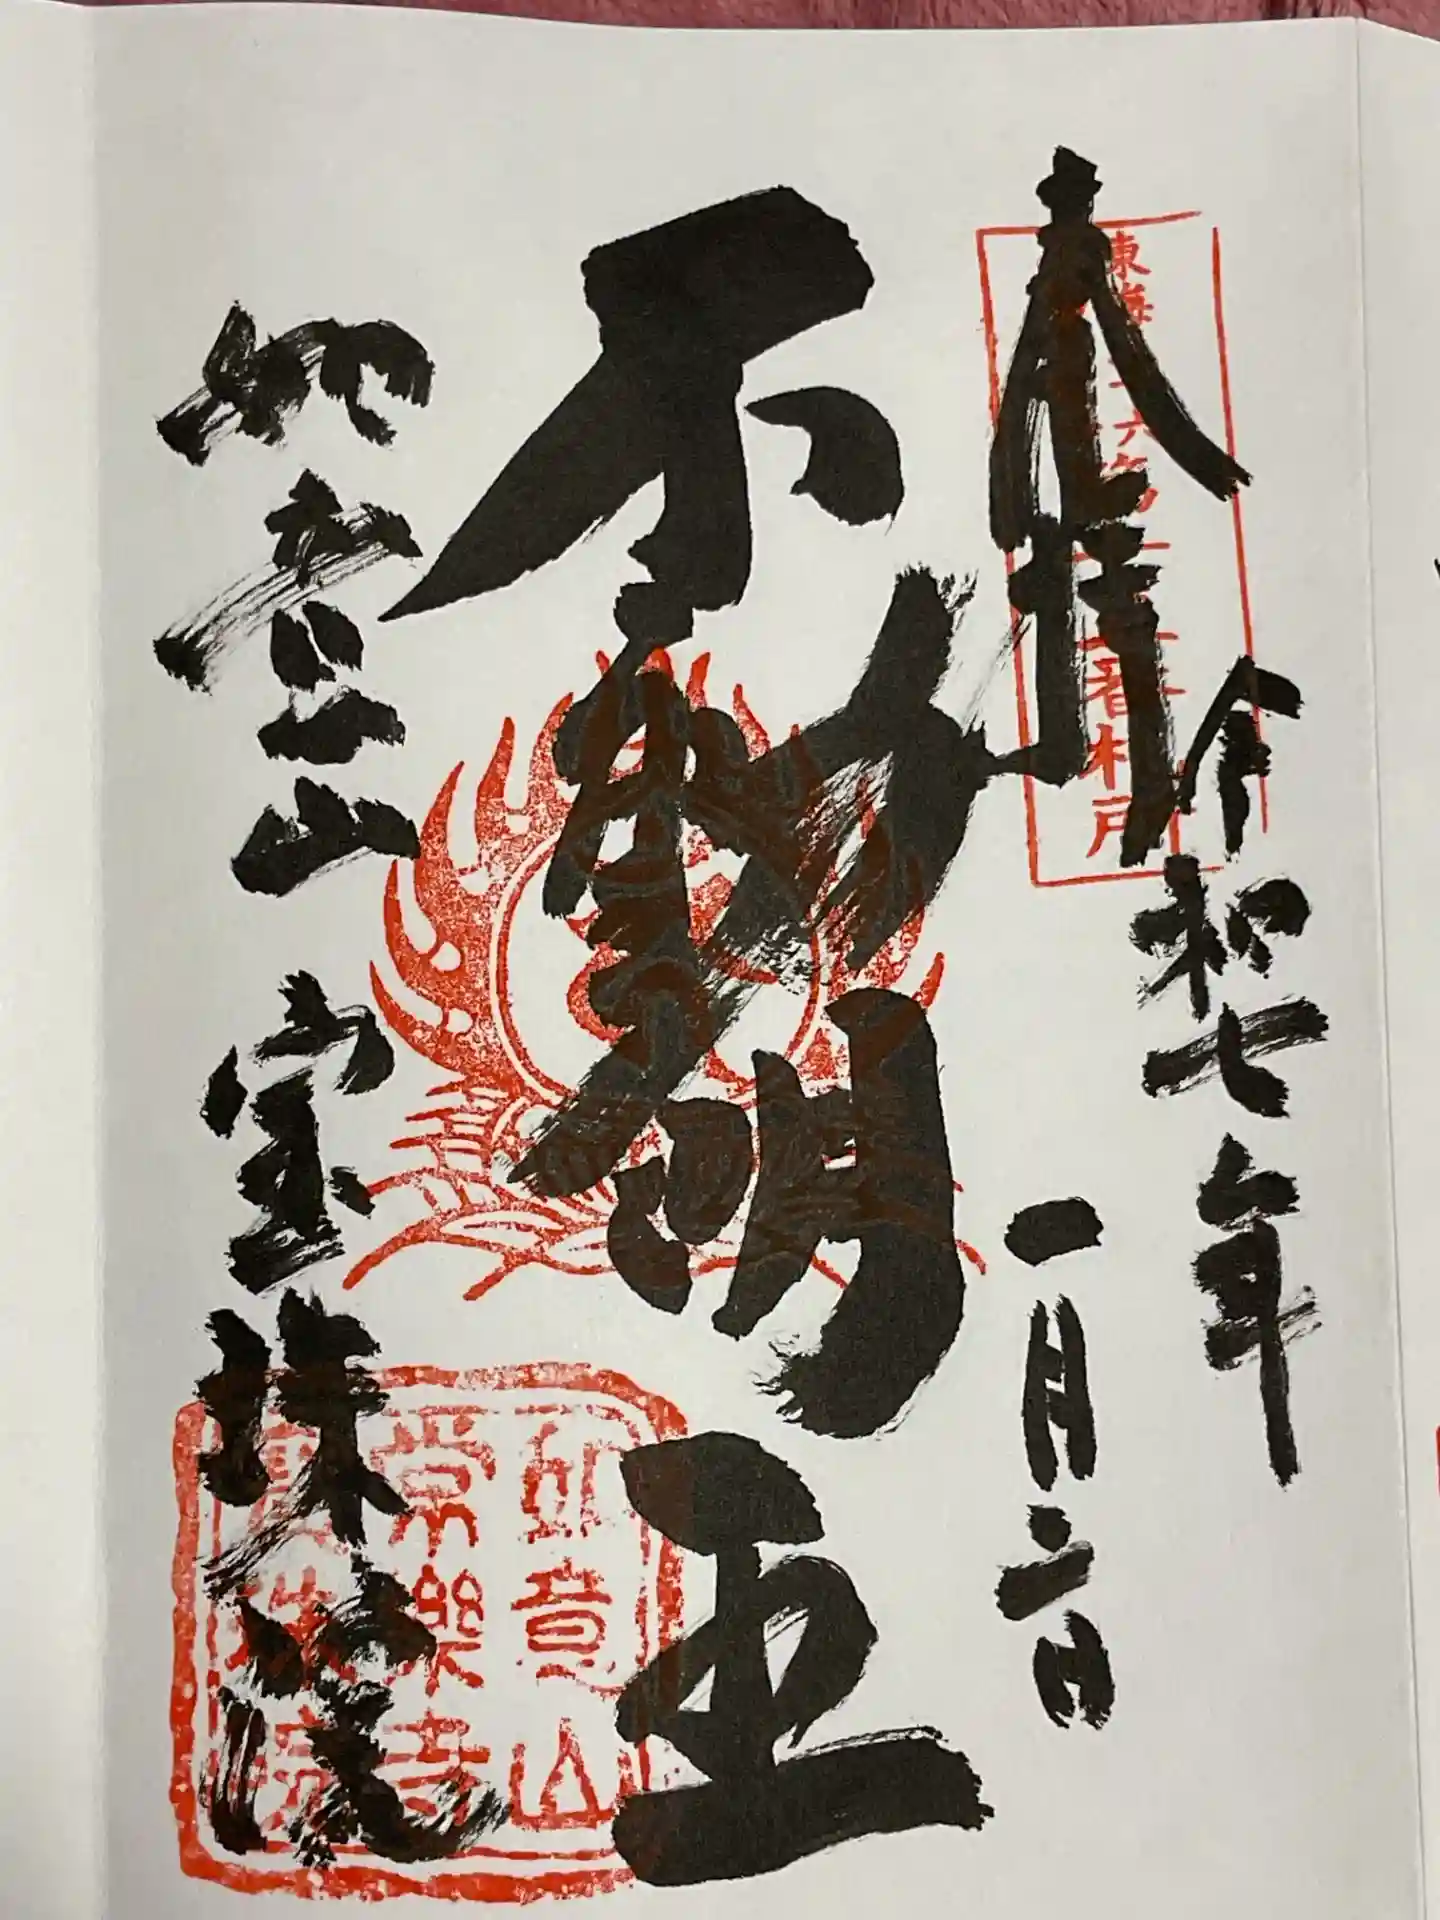 東海三十六不動
番札所
奉拝
令和七年
一月六日
不動明王
如意山 宝珠院
如意山
常樂寺
寳珠院